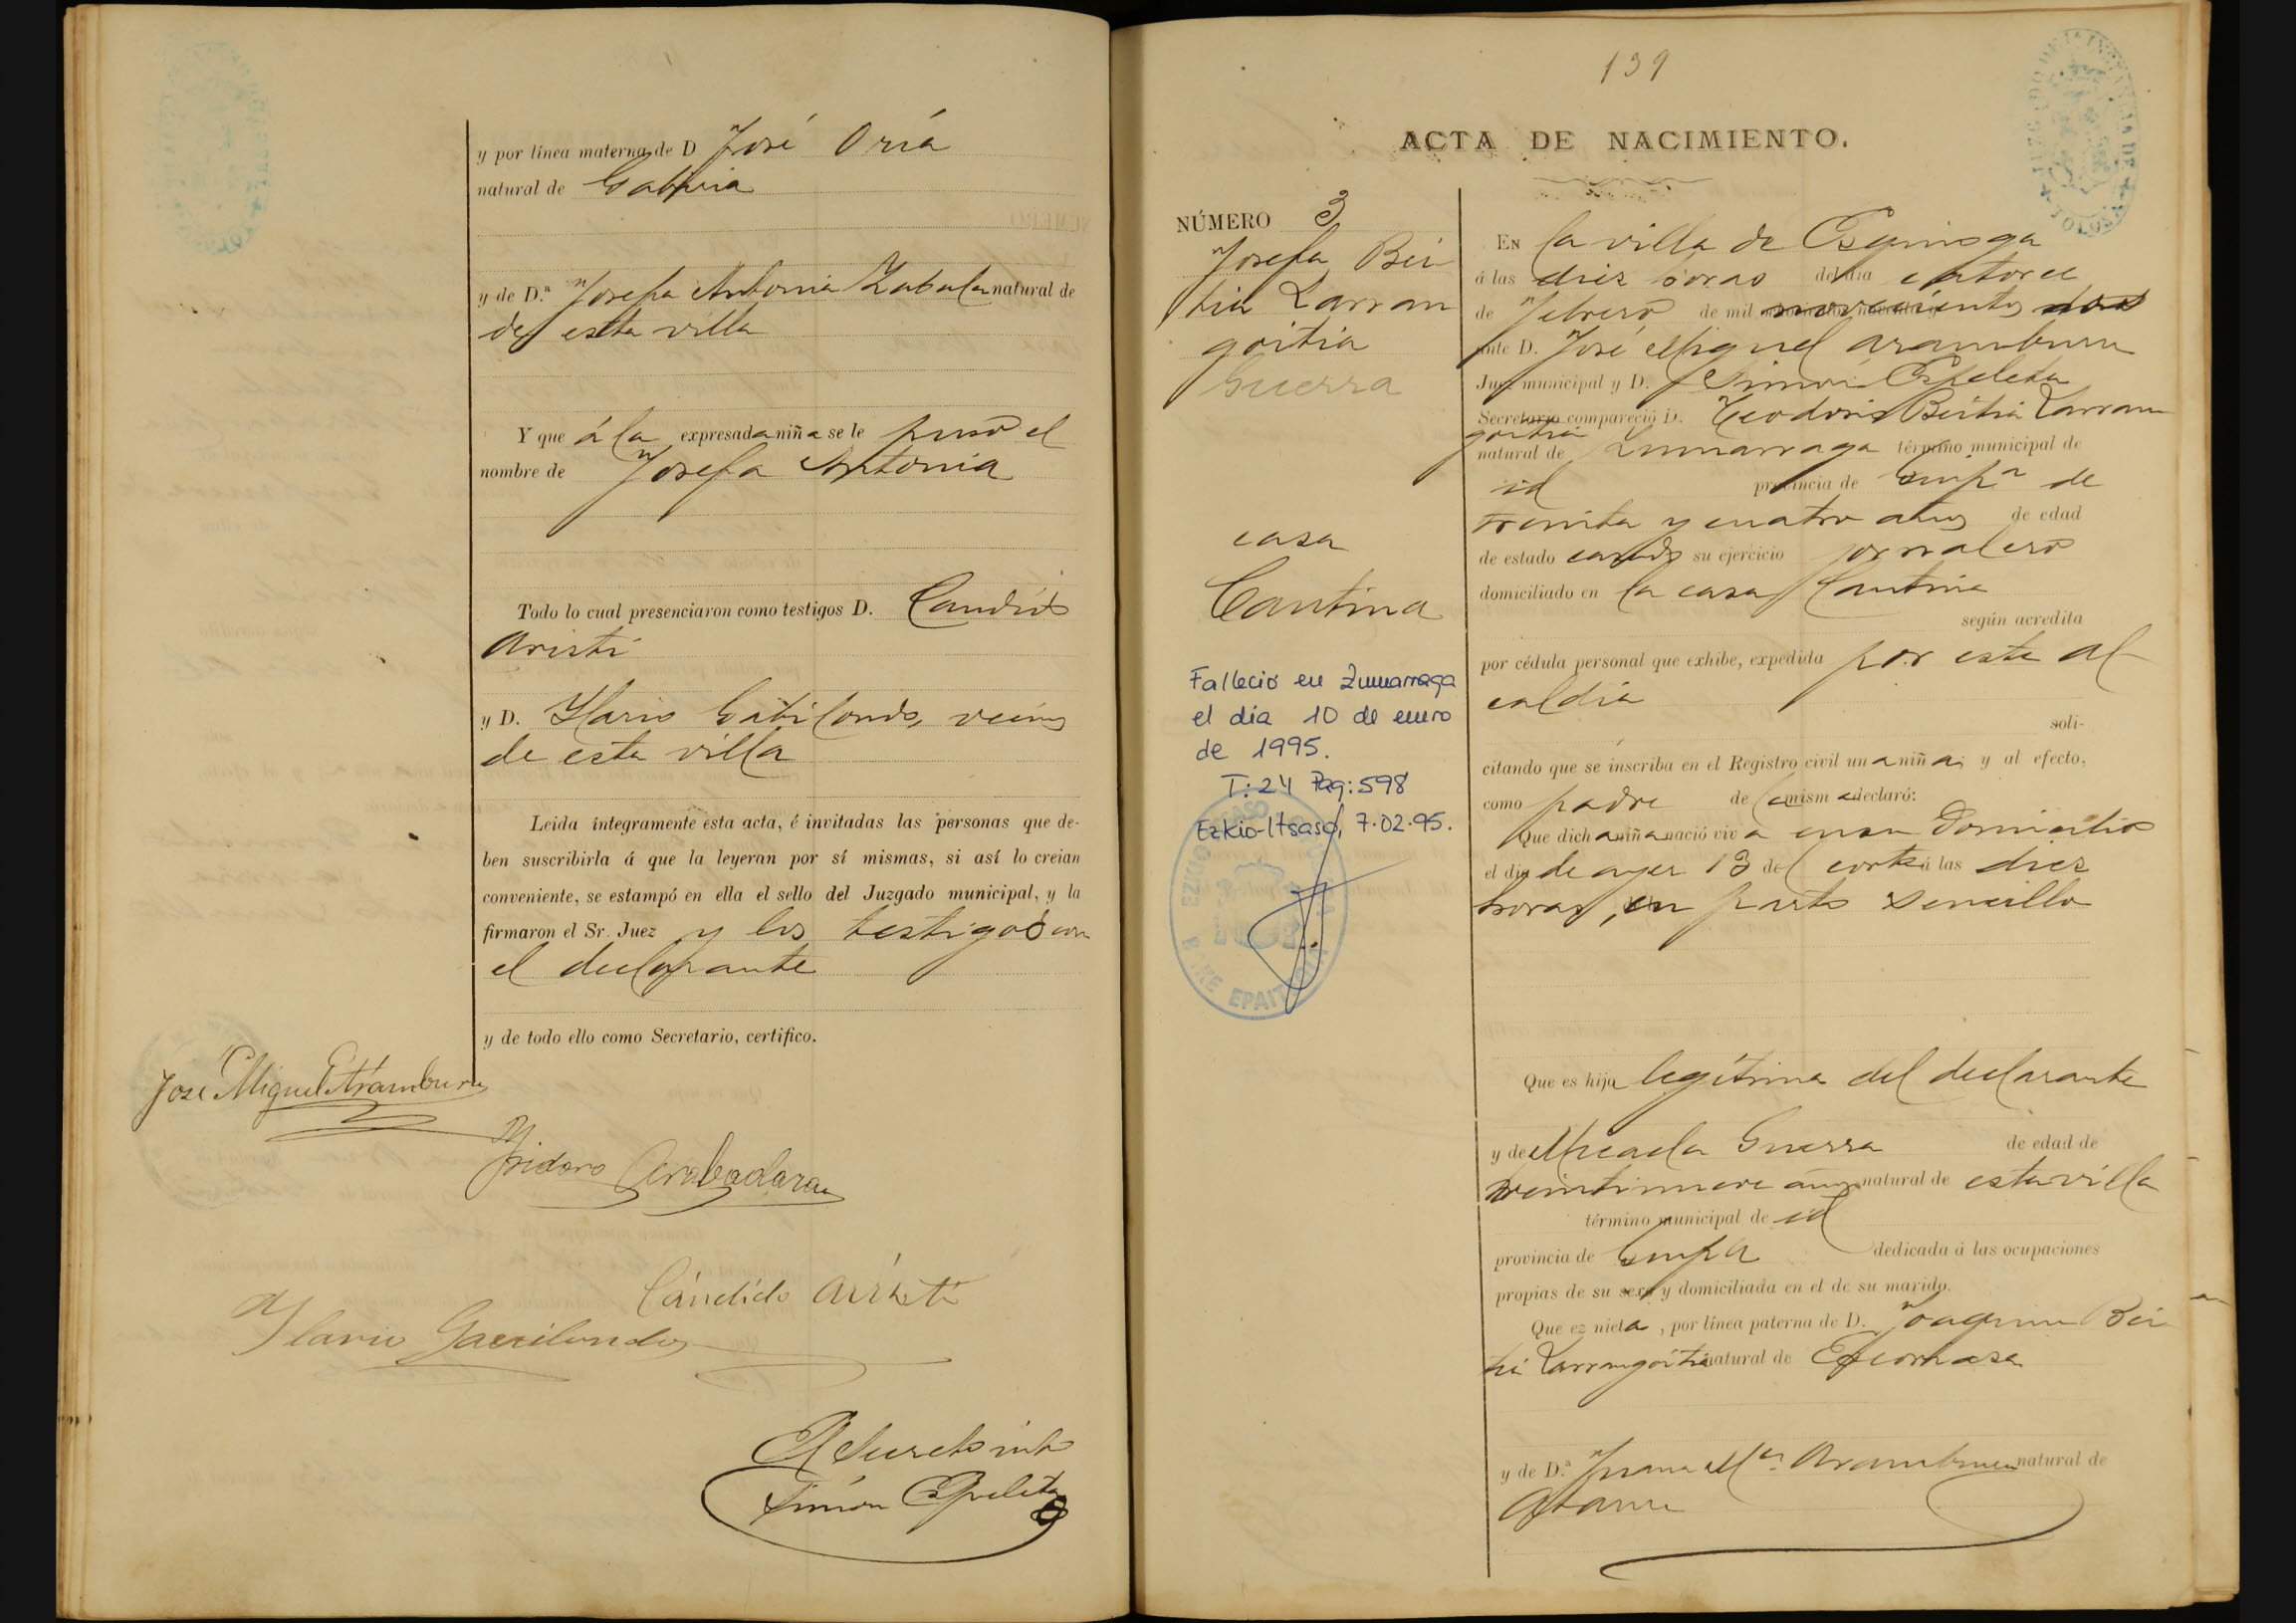 y por línea materna de D. José Oría
natural de Gabiria
y de D.ª Josefa Antonia Zabala natural de
de esta villa
Y que á la expresada niña se le puso el
nombre de Josefa Antonia
Todo lo cual presenciaron como testigos D. Candido
Aristi
y D. Ilario Gabilondo, vecinos
de esta villa
Leida íntegramente esta acta, é invitadas las personas que de-
ben suscribirla á que la leyeran por sí mismas, si así lo creian
conveniente, se estampó en ella el sello del Juzgado municipal, y la
firmaron el Sr. Juez y los testigos con
el declarante
y de todo ello como Secretario, certifico.
José Miguel Aramburu
Ysidoro
Cándido Aristi
Ylario Gavilondo
El Secreto into
Simón Espeleta
139
ACTA DE NACIMIENTO.
NÚMERO 3
Josefa Bei
tia Larran
goitia
Guerra
casa
Cantina
Falleció en Zumarraga
el día 10 de enero
de 1995.
T: 24 Pag: 598
Ezkio-Itsaso, 7.02.95.
En la villa de Ezquioga
á las diez horas del dia catorce
de Febrero de mil novecientos dos
ante D. José Miguel Aramburu
Juez municipal y D. Simón Espeleta
Secretario compareció D. Teodoro Beitia Larran
goitia
natural de Zumarraga término municipal de
id provincia de Guipª de
treinta y cuatro años de edad
de estado casado su ejercicio jornalero
domiciliado en la casa Cantina
según acredita
por cédula personal que exhibe, expedida por esta al
caldia
soli-
citando que se inscriba en el Registro civil una niña; y al efecto,
como padre de la misma declaró:
Que dicha niña nació viva en su domicilio
el dia de ayer 13 del corte á las diez
horas, en parto sencillo
Que es hija legítima del declarante
y de Micaela Guerra de edad de
veintinueve años natural de esta villa
término municipal de id
provincia de Guipa dedicada á las ocupaciones
propias de su sexo y domiciliada en el de su marido.
Que es nieta, por línea paterna de D. Joaquin Bei
tia Larrangoitia natural de
y de D.ª Juana Mª Aramburu natural de
Ataun